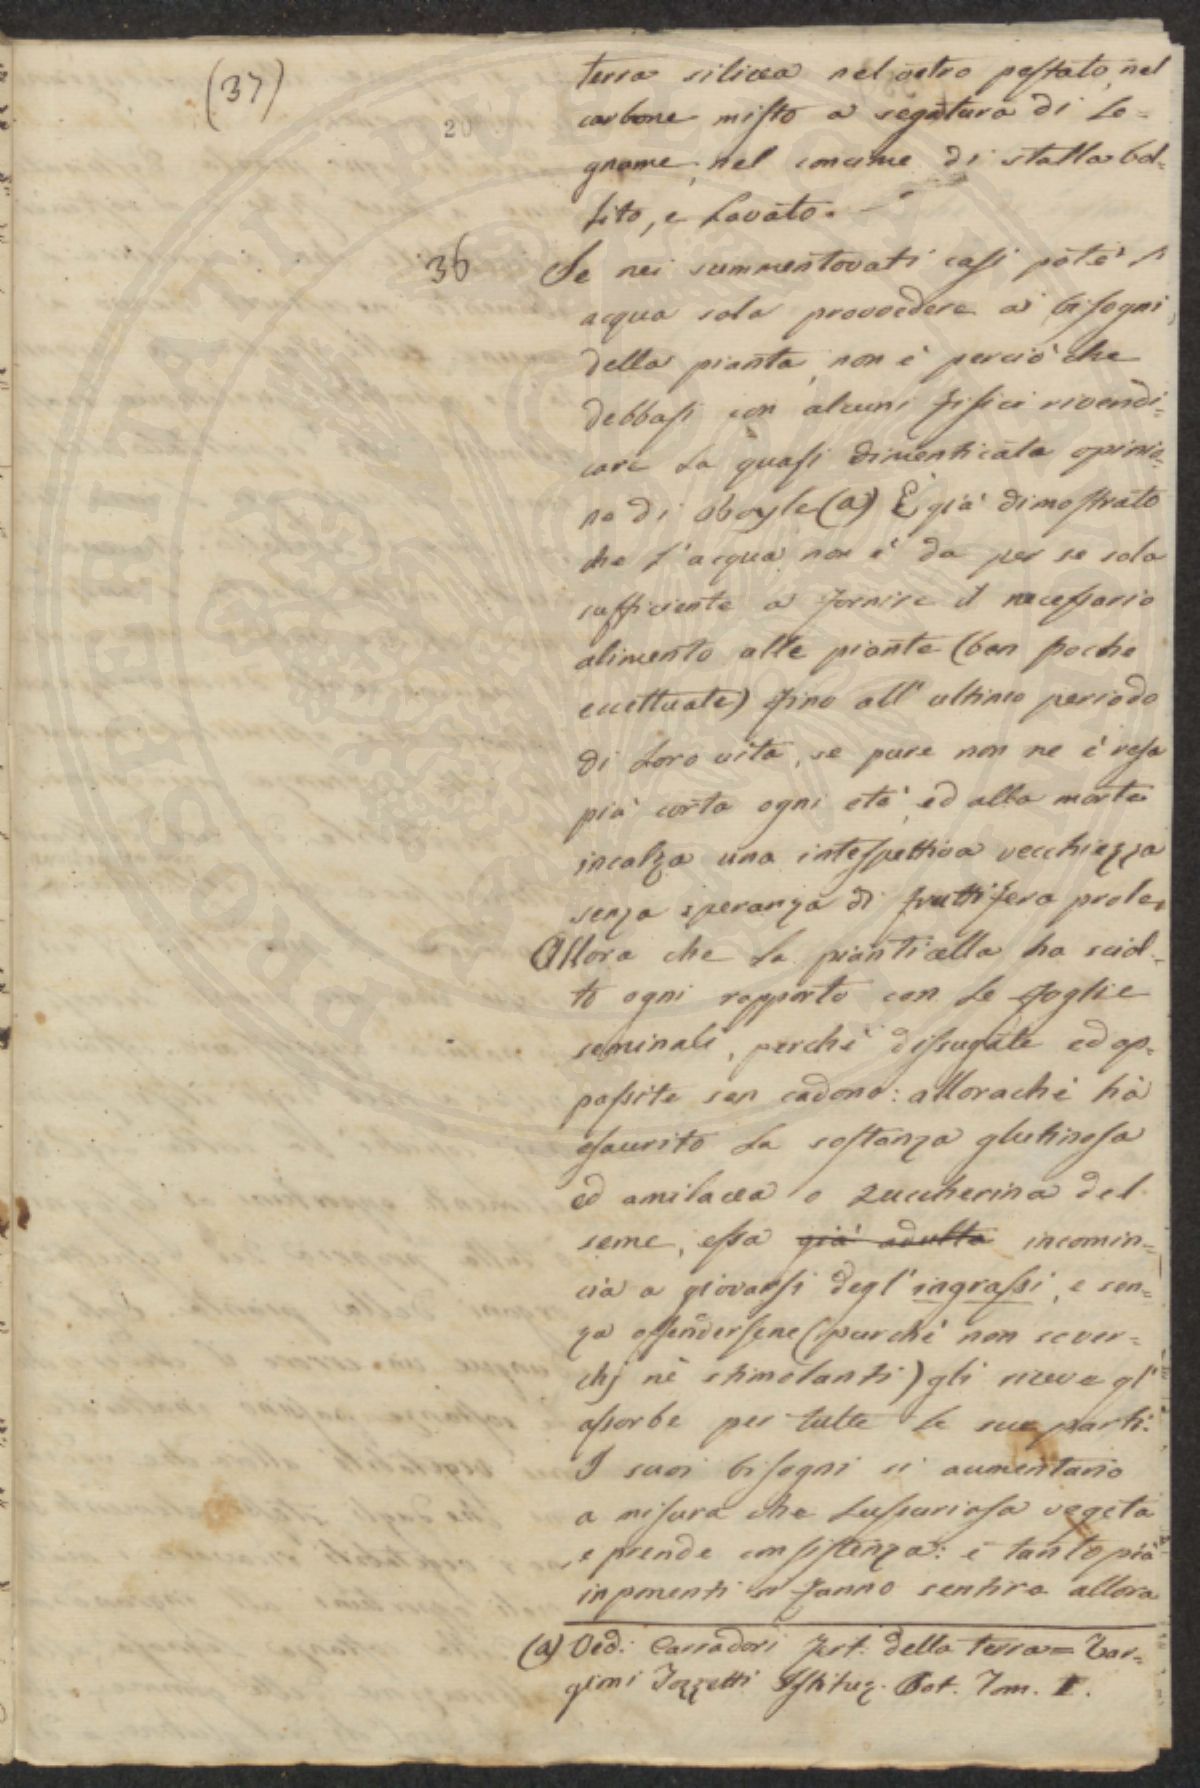 (37)
20
terra silicea nel vetro pestato, nel
carbone misto a segatura di le=
gname, nel concime di stalla bol=
lito, e lavato. —
36 Se nei summentovati casi potè l'
acqua sola provvedere ai bisogni
della pianta, non è perciò che
debbasi con alcuni fisici rivendi=
care la quasi dimenticata opinio=
ne di Boyle (a) È già dimostrato
che l'acqua non è da per se sola
sufficiente a fornire il necessario
alimento alle piante (ben poche
eccettuate) fino all'ultimo periodo
di loro vita, se pure non ne è resa
più corta ogni età, ed alla morte
incalza una intespettiva vecchiezza
senza speranza di fruttifera prole.
Allora che la pianticella ha sciol=
to ogni rapporto con le foglie
seminali, perchè dissugate ed ap=
passite sen cadono: allorachè hà
esaurito la sostanza glutinosa
ed amilacea o zuccherina del
seme, essa già adulta incomin=
cia a giovarsi degl'ingrassi, e sen=
za offendersene (purchè non sover=
chj nè stimolanti) gli riceve gl'
assorbe per tutte le sue parti.
I suoi bisogni si aumentano
a misura che lussuriosa vegeta
e prende consistenza: e tanto più
imponenti si fanno sentire allora
(a) Ved: Carradori fert. della terra = Tar=
gioni Tozzetti Istituz. Bot. Tom. I.